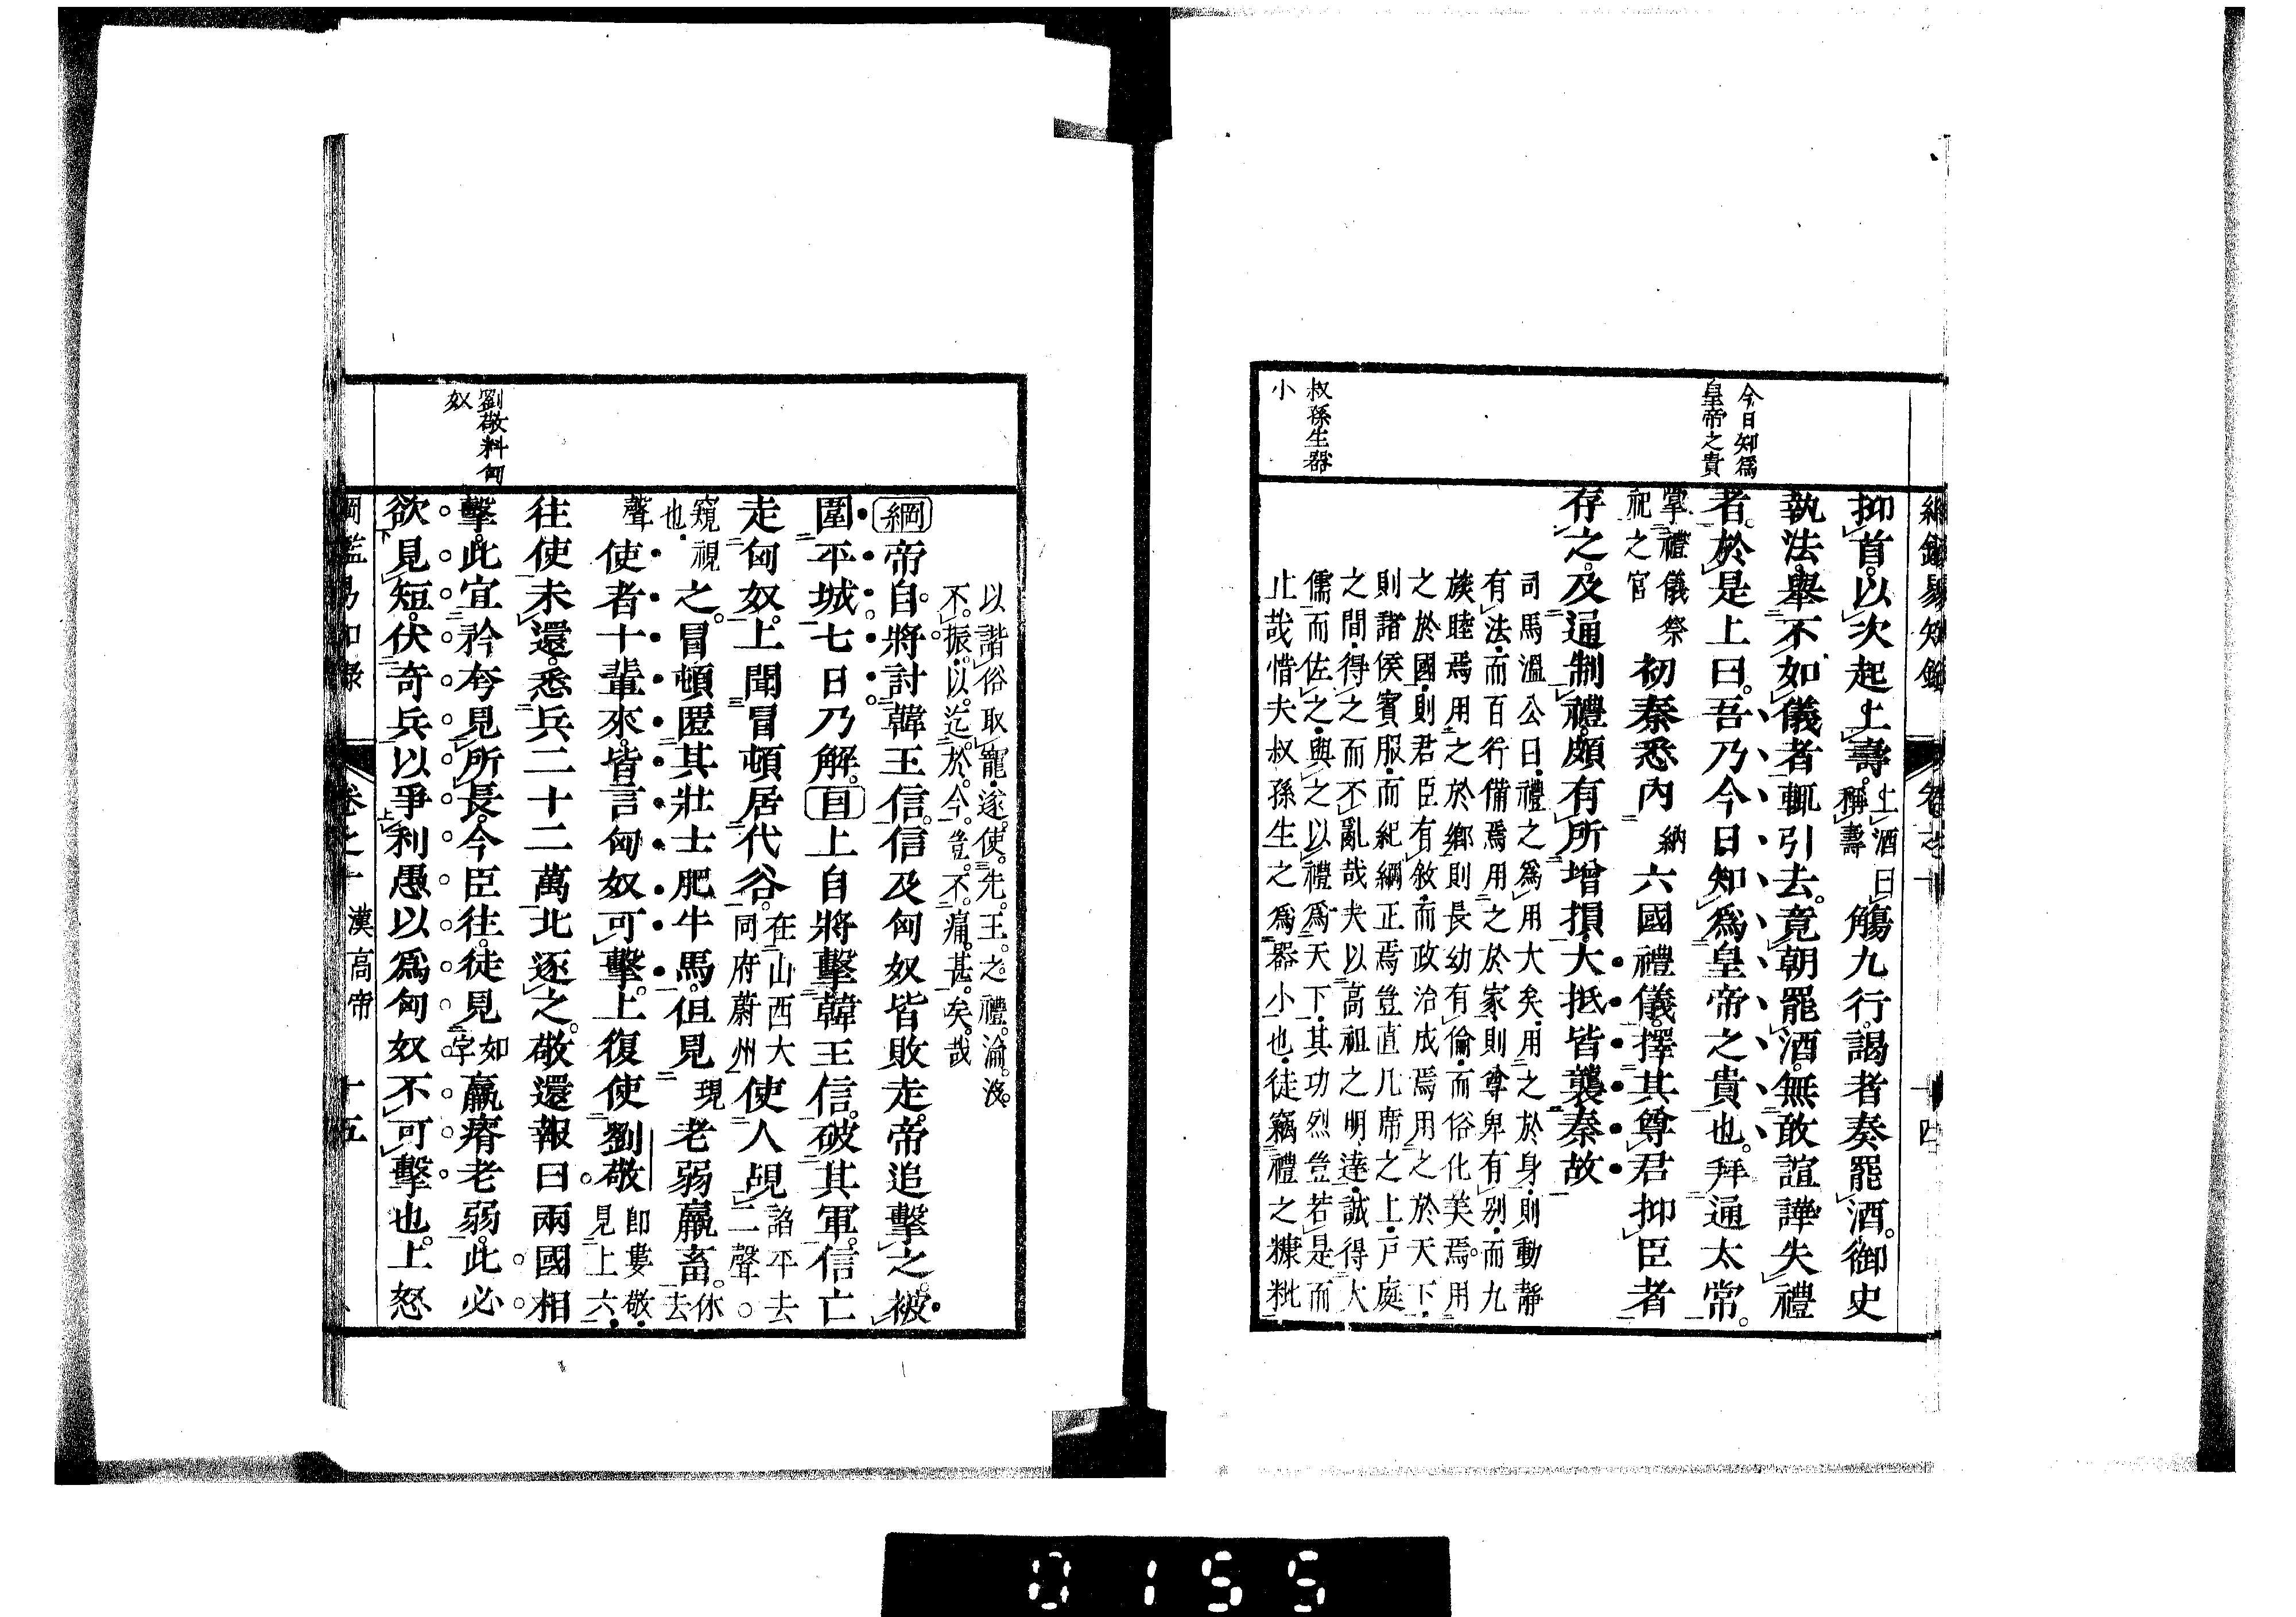 綱鑑易知錄
卷之十
十四
今日知爲
皇帝之貴
叔孫生器
小
抑首以次起上壽上酒曰稱壽觴九行謁者奏罷酒御史
執法舉不如儀者輒引去竟朝罷酒無敢諠譁失禮
者於是上曰吾乃今日知爲皇帝之貴也拜通太常
掌禮儀祭祀之官初秦悉內納六國禮儀擇其尊君抑臣者
存之及通制禮頗有所增損大抵皆襲秦故
司馬溫公曰禮之爲用大矣用之於身則動靜
有法而百行備焉用之於家則尊卑有別而九
族睦焉用之於鄉則長幼有倫而俗化美焉用
之於國則君臣有敘而政治成焉用之於天下
則諸侯賓服而紀綱正焉豈直几席之上戶庭
之間得之而不亂哉夫以高祖之明達誠得大
儒而佐之與之以禮爲天下其功烈豈若是而
止哉惜夫叔孫生之爲器小也徒竊禮之糠粃
以諧俗取寵遂使先王之禮淪沒
不振以迄於今豈不痛甚矣哉
綱帝自將討韓王信信及匈奴皆敗走帝追擊之被
圍平城七日乃解目上自將擊韓王信破其軍信亡
走匈奴上聞冒頓居代谷在山西大同府蔚州使人覘諂平去二聲○
窺視也之冒頓匿其壯士肥牛馬但見現老弱羸畜休去
聲使者十輩來皆言匈奴可擊上復使劉敬卽婁敬見上六
往使未還悉兵二十二萬北逐之敬還報曰兩國相
擊此宜矜夸見所長今臣往徒見如字羸瘠老弱此必
欲見短伏奇兵以爭利愚以爲匈奴不可擊也上怒
劉敬料匈
奴
綱鑑易知錄
卷之十
漢高帝
十五
0155